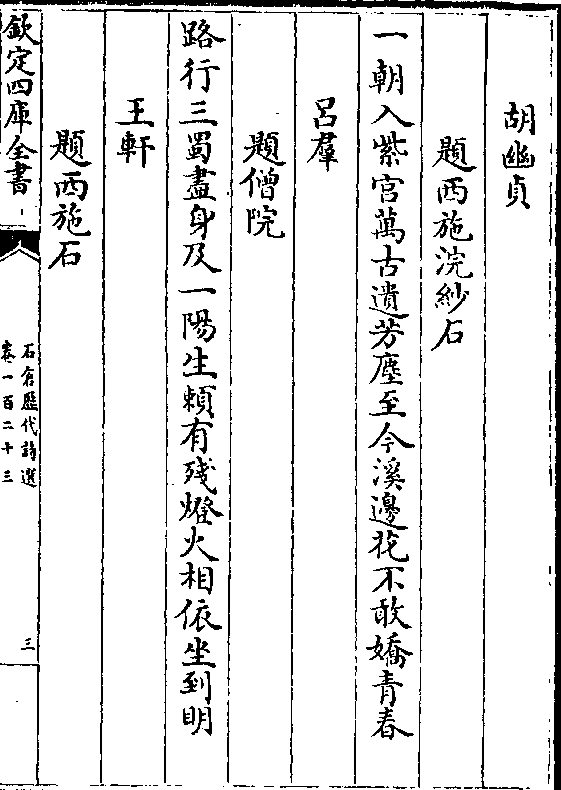 胡幽貞
題西施浣紗石
一朝入紫宮萬古遺芳塵至今溪邊花不敢嬌青春
呂羣
題僧院
路行三蜀盡身及一陽生賴有殘燈火相依坐到明
王軒
題西施石
欽定四庫全書
石倉歷代詩選
卷一百二十三
三